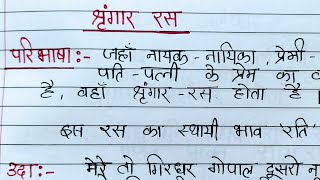 श्रृंगार रस
परिभाषा:- जहाँ नायक-नायिका, प्रेमी-
पति-पत्नी के प्रेम का
है, वहाँ श्रृंगार-रस होता है ।
इस रस का स्थायी भाव 'रति'
उदा:- मेरे तो गिरधर गोपाल दूसरो